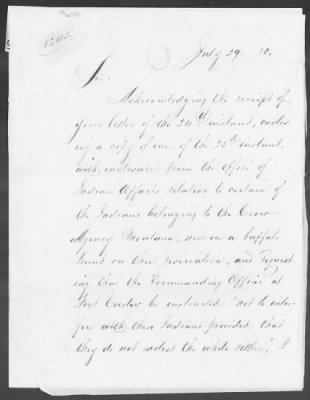 1293.
July 29. 80.
Sir.
Acknowledging the receipt of
your letter of the 24th instant, enclos
ing a copy of one, of the 23d instant,
with enclosure, from the Office of
Indian Affairs relative to certain of
the Indians belonging to the Crow
Agency Montana, now on a buffalo
hunt on their reservation, and request
ing that the Commanding Officer at
Fort Custer be instructed "not to inter-
fere with these Indians provided that
they do not molest the white settlers," I